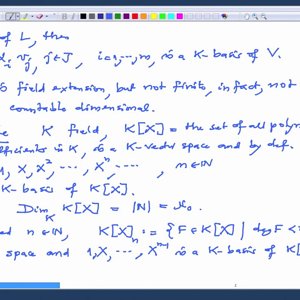 of L, then
v_j, j∈J, i=1,…,m, is a K-basis of V.
field extension, but not finite, in fact, not
countable dimensional.
K field, K[X] = the set of all polyn
efficients in K, is a K-vector space and by def.
1, X, X², …, Xⁿ, …, n∈ℕ
K-basis of K[X].
Dim_K K[X] = |ℕ| = ℵ₀.
n∈ℕ, K[X]_n := {F∈K[X] | deg F <
space and 1, X, …, Xⁿ⁻¹ is a K-basis of K[